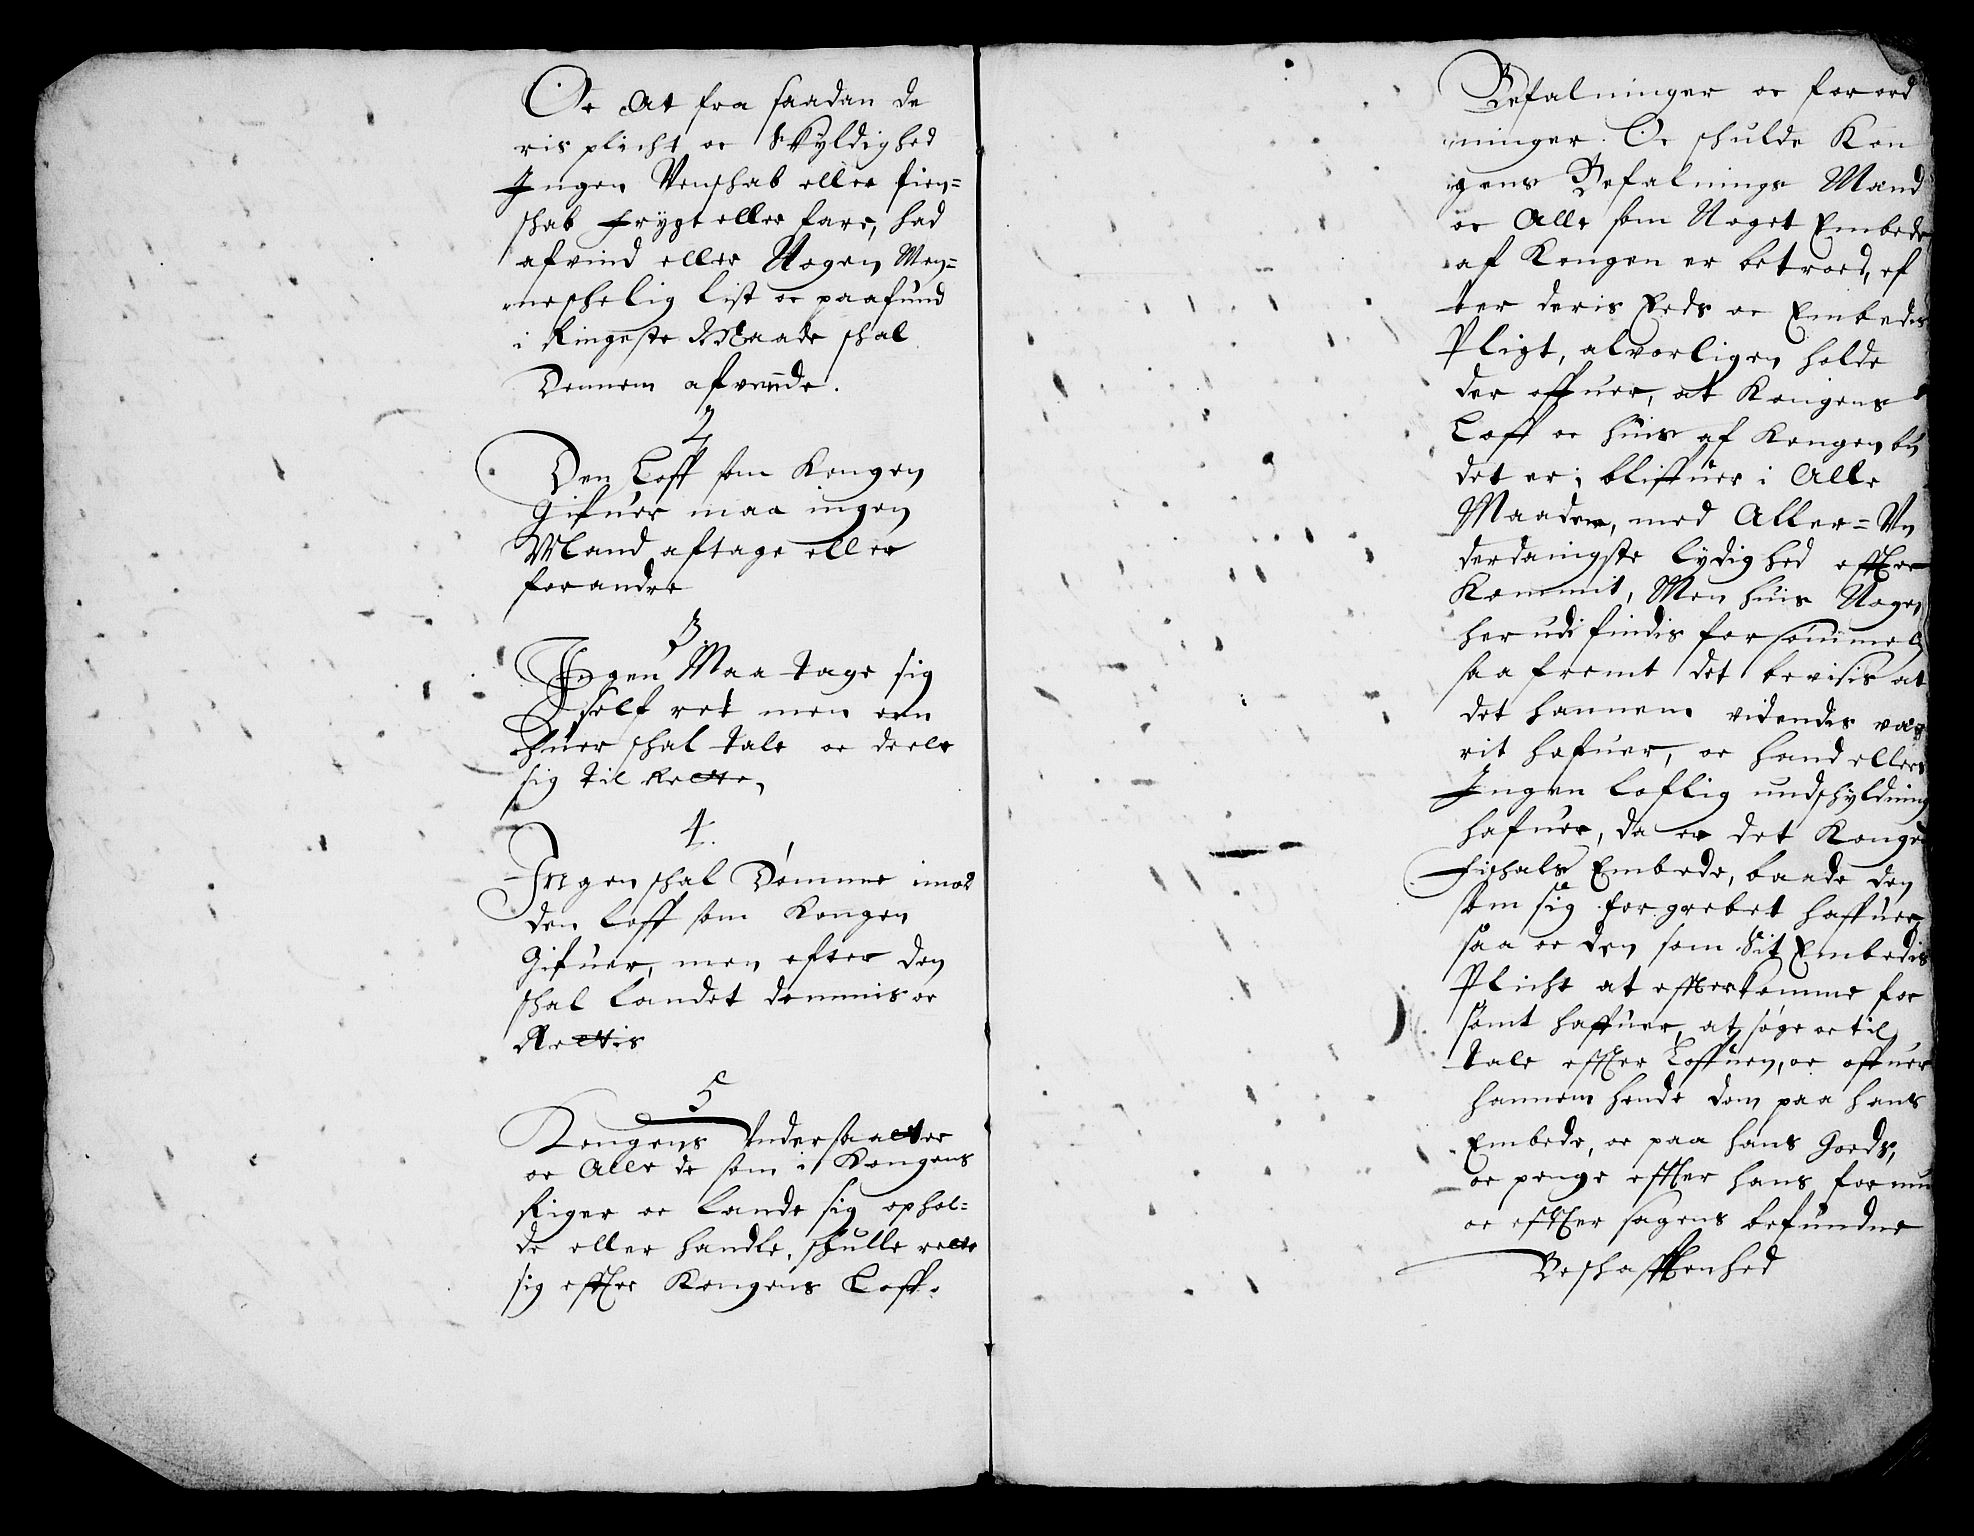 Oc At fra saadan de
ris plicht oc Skyldighed
Ingen Venschab eller fien=
schab frygt eller fare, had
afvind eller Nogen Men=
neschelig list oc paafund
i Ringeste Maade schal
Dennem afvende.
2
Den Loff som Kongen
Gifuer maa ingen
Mand aftage eller
forandre
3.
Ingen Maa tage sig
self ret men een
huer schal tale oc deele
sig til Rette,
4.
Ingen schal Dømme imod
den loff som Kongen
Gifuer, men efter den
schal landet dømmis oc
Rettis
5
Kongens Undersaatter
oc Alle de som i Kongens
Riger oc lande sig ophol=
de eller handle, skulle rette
sig effter Kongens Loff.
Befalninger oc forord
ninger. Oc schulde Kon
gens Befalnings Mand
oc Alle som Noget Embede
af Kongen er betroed, ef
ter deris Eeds oc Embedis
Pligt, alvorligen holde
der offuer, at Kongens
Loff oc huis af Kongen bu
det er, bliffuer i Alle
Maader, med Aller=Un
derdanigste lydighed effter
Kommit, Men huis Nogen
her udi findis forsømmelig
saa fremt det bevisis at
det hannem videndis væ
rit hafuer, oc hand ellers
Ingen loflig undschyldning
hafuer, da er det Konge
fischals Embede, baade den
som sig forgrebet haffuer
saa oc den som Sit Embedis
Plicht at effterkomme for
sømt haffuer, at søge oc til
tale effter Loffuen, oc offuer
hannem hende dom paa hans
Embede, oc paa hans Goeds,
oc penge effter hans formu
oc effter sagens befundne
Beschaffenhed